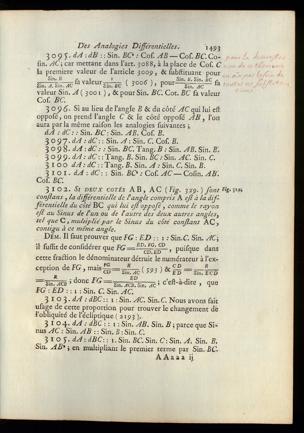 Des Analogies Différentielles. 1493
3095. dA : dB :: Sin. BC² : Cos. AB — Cos. BC. Co-
sin. AC ; car mettant dans l'art. 3088, à la place de Cos. C
la premiere valeur de l'article 3009, & substituant pour
sa valeur (3006), pour sa
valeur Sin. A (3001), & pour Sin. BC. Cot. BC sa valeur
Cos. BC.
3096. Si au lieu de l'angle B & du côté AC qui lui est
opposé, on prend l'angle C & le côté opposé AB, l'on
aura par la même raison les analogies suivantes ;
dA : dC :: Sin. BC : Sin. AB. Cos. B.
3097. dA : dC :: Sin. A : Sin. C. Cos. B.
3098. dA : dC :: Sin. BC. Tang. B : Sin. AB. Sin. B.
3099. dA : dC :: Tang. B. Sin. BC : Sin. AC. Sin. C.
3100. dA : dC :: Tang. B. Sin. A : Sin. C. Sin. B.
3101. dA : dC :: Sin. BC² : Cos. AC — Cosin. AB.
Cos. BC.
3102. SI DEUX COTÉS AB, AC (Fig. 329.) sont Fig. 329.
constans, la différentielle de l'angle compris A est à la dif-
férentielle du côté BC qui lui est opposé, comme le rayon
est au Sinus de l'un ou de l'autre des deux autres angles,
tel que C, multiplié par le Sinus du côté constant AC,
contigu à ce même angle.
DÉM. Il faut prouver que FG : ED :: 1 : Sin. C. Sin. AC ;
il suffit de considérer que FG = ED. FG. CD / CD. ED , puisque dans
cette fraction le dénominateur détruit le numérateur à l'ex-
ception de FG ; mais FG / CD = R / Sin. AC (593) & CD / ED = R / Sin. ECD
= R / Sin. ACB ; donc FG = ED / Sin. ACB. Sin. AC ; c'est-à-dire, que
FG : ED :: 1 : Sin. C. Sin. AC.
3103. dA : dBC :: 1 : Sin. AC. Sin. C. Nous avons fait
usage de cette proportion pour trouver le changement de
l'obliquité de l'écliptique (2193).
3104. dA : dBC :: 1 : Sin. AB. Sin. B ; parce que Si-
nus AC : Sin. AB :: Sin. B : Sin. C.
3105. dA : dBC :: 1. Sin. BC. Sin. C : Sin. A. Sin. B.
Sin. AB² ; en multipliant le premier terme par Sin. BC.
AAaaa ij